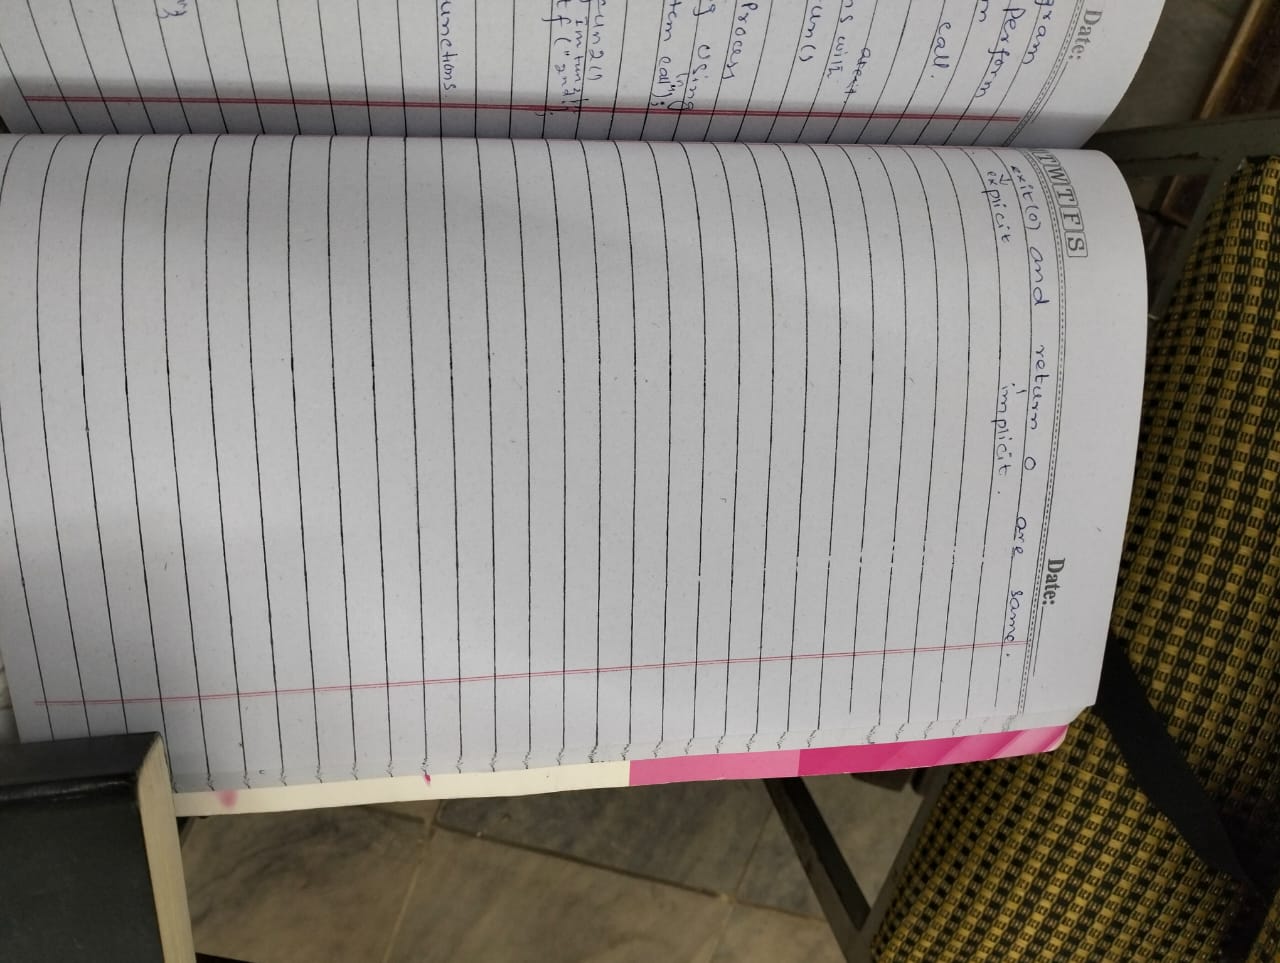 Date:
gram
Perform
m
call.
ns with
un()
Process
g using
tem call");
un2()
tf ("2nd
unctions.
TWTFS
Date:
exit(0) and return 0 are same.
explicit implicit.